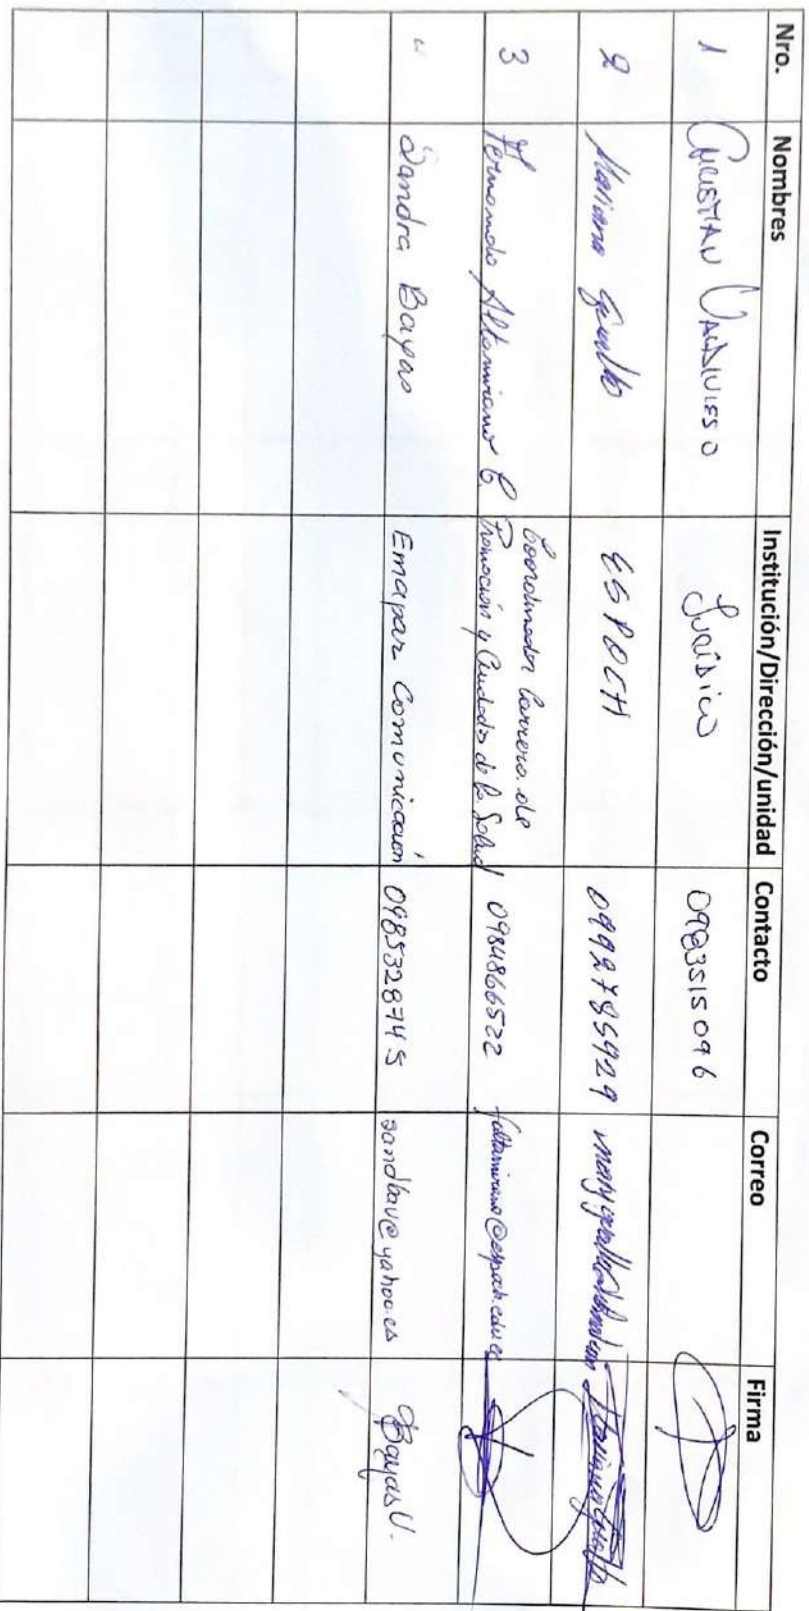 Nro. Nombres Institución/Dirección/unidad Contacto Correo Firma
1 CHRISTIAN VALDIVIESO JURÍDICO 0983515096
2 ESPOCH 0992785929
3 Fernando Altamirano C. Coordinador Carrera de
Promoción y Cuidados de la Salud 0984866522 faltamirano@espoch.edu.ec
Sandra Bayas Emapar Comunicación 0985328745 sandbav@yahoo.es SBayasV.